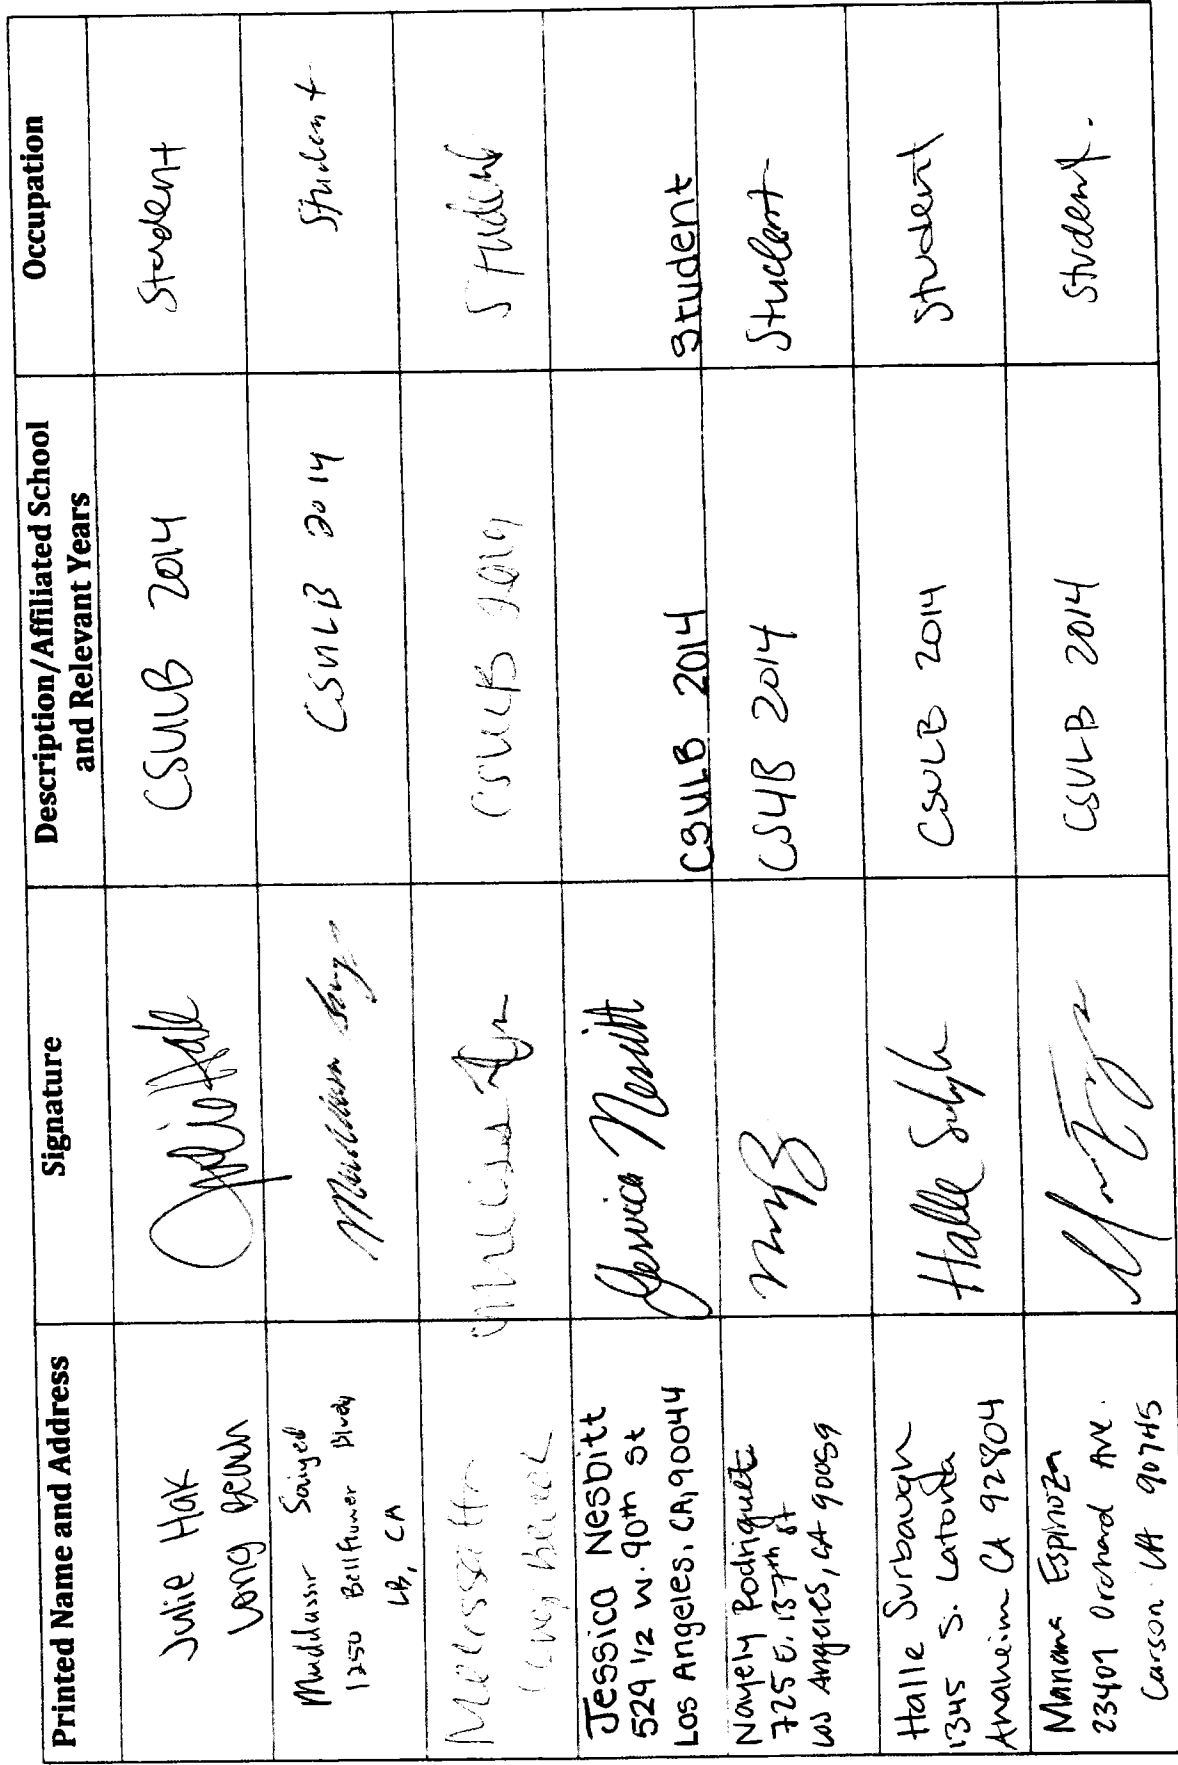 Printed Name and Address
Signature
Description/Affiliated School
and Relevant Years
Occupation
Julie Hak
Long Beach
Julie Hak
CSULB 2014
Student
Mudassir Saiyed
1250 Bellflower Blvd
LB, CA
CSULB 2014
Student
Long Beach
CSULB
Student
Jessica Nesbitt
529 1/2 W. 90th St
Los Angeles, CA, 90044
Jessica Nesbitt
CSULB 2014
Student
Nayely Rodriguez
725 E. 137th St
Los Angeles, CA 90059
CSULB 2014
Student
Halle Surbaugh
1345 S. Latonda
Anaheim CA 92804
Halle
CSULB 2014
Student
Mariana Espinoza
23401 Orchard Ave.
Carson CA 90745
CSULB 2014
Student.